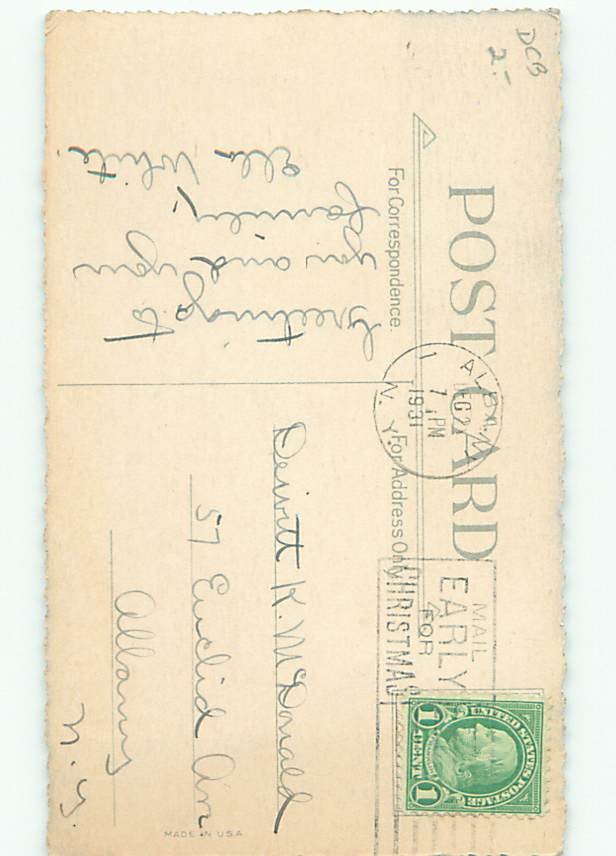 DCB
2.-
POST CARD
For Correspondence.
For Address Only
Greetings to
you and your
family,
Ella White.
Dewitt K. McDonald
57 Euclid Ave
Albany
N.Y.
ALBANY
1
DEC 2
7 PM
1931
N.Y.
MAIL
EARLY
FOR
CHRISTMAS
UNITED STATES POSTAGE
1 CENT 1
MADE IN U.S.A.